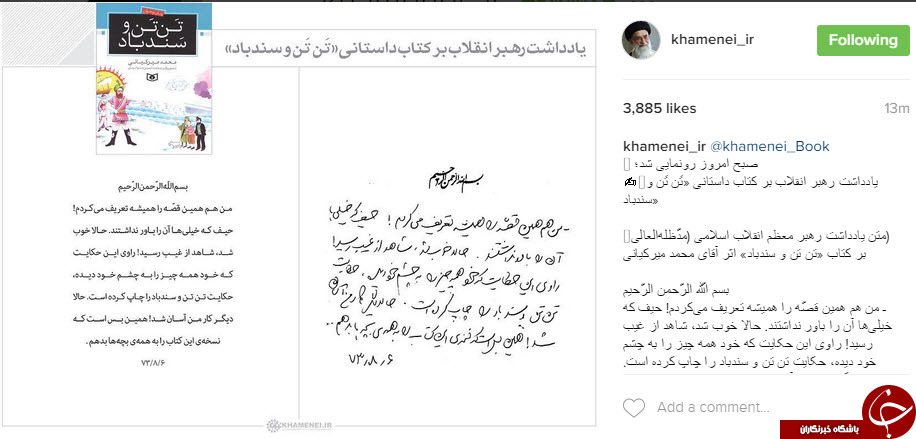 یادداشت رهبر انقلاب بر کتاب داستانی «تَن تَن و سندباد»
تَن‌تَن و
سَندباد
محمد میرکیانی
بسم‌الله الرّحمن الرّحیم
من هم همین قصّه را همیشه تعریف می‌کردم!
حیف که خیلی‌ها آن را باور نداشتند. حالا خوب
شد، شاهد از غیب رسید! راوی این حکایت
که خود همه چیز را به چشم خود دیده،
حکایت تن تن و سندباد را چاپ کرده است. حالا
دیگر کار من آسان شد! همین بس است که
نسخه‌ی این کتاب را به همه‌ی بچه‌ها بدهم.
۷۳/۸/۶
بسم الله الرحمن الرحیم
- من هم همین قصّه را همیشه تعریف می‌کردم! حیف که خیلی‌ها
آن را باور نداشتند. حالا خوب شد، شاهد از غیب رسید!
راوی این حکایت که خود همه چیز را به چشم خود دیده، حکایت
تن تن و سندباد را چاپ کرده است. حالا دیگر کار من آسان
شد! همین بس است که نسخه‌ی این کتاب را به همه‌ی بچه‌ها بدهم...
۷۳/۸/۶
KHAMENEI.IR
khamenei_ir
Following
3,885 likes
13m
khamenei_ir @khamenei_Book
صبح امروز رونمایی شد؛
یادداشت رهبر انقلاب بر کتاب داستانی «تَن تَن و
سندباد»
(متن یادداشت رهبر معظم انقلاب اسلامی (مدّظله‌العالی
بر کتاب «تن تن و سندباد» اثر آقای محمد میرکیانی
بسم الله الرّحمن الرّحیم
ـ من هم همین قصّه را همیشه تعریف می‌کردم! حیف که
خیلی‌ها آن را باور نداشتند. حالا خوب شد، شاهد از غیب
رسید! راوی این حکایت که خود همه چیز را به چشم
خود دیده، حکایت تن تن و سندباد را چاپ کرده است.
Add a comment...
باشگاه خبرنگاران